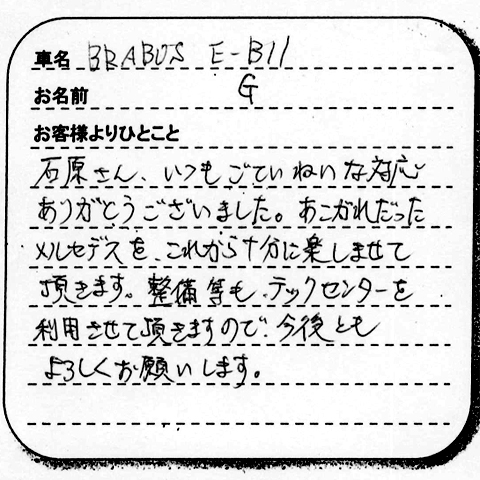 車名 BRABUS E-B11
お名前 G
お客様よりひとこと
石原さん、いつもごていねいな対応
ありがとうございました。あこがれだった
メルセデスを、これから十分に楽しませて
頂きます。整備等も、テックセンターを
利用させて頂きますので、今後とも
よろしくお願いします。